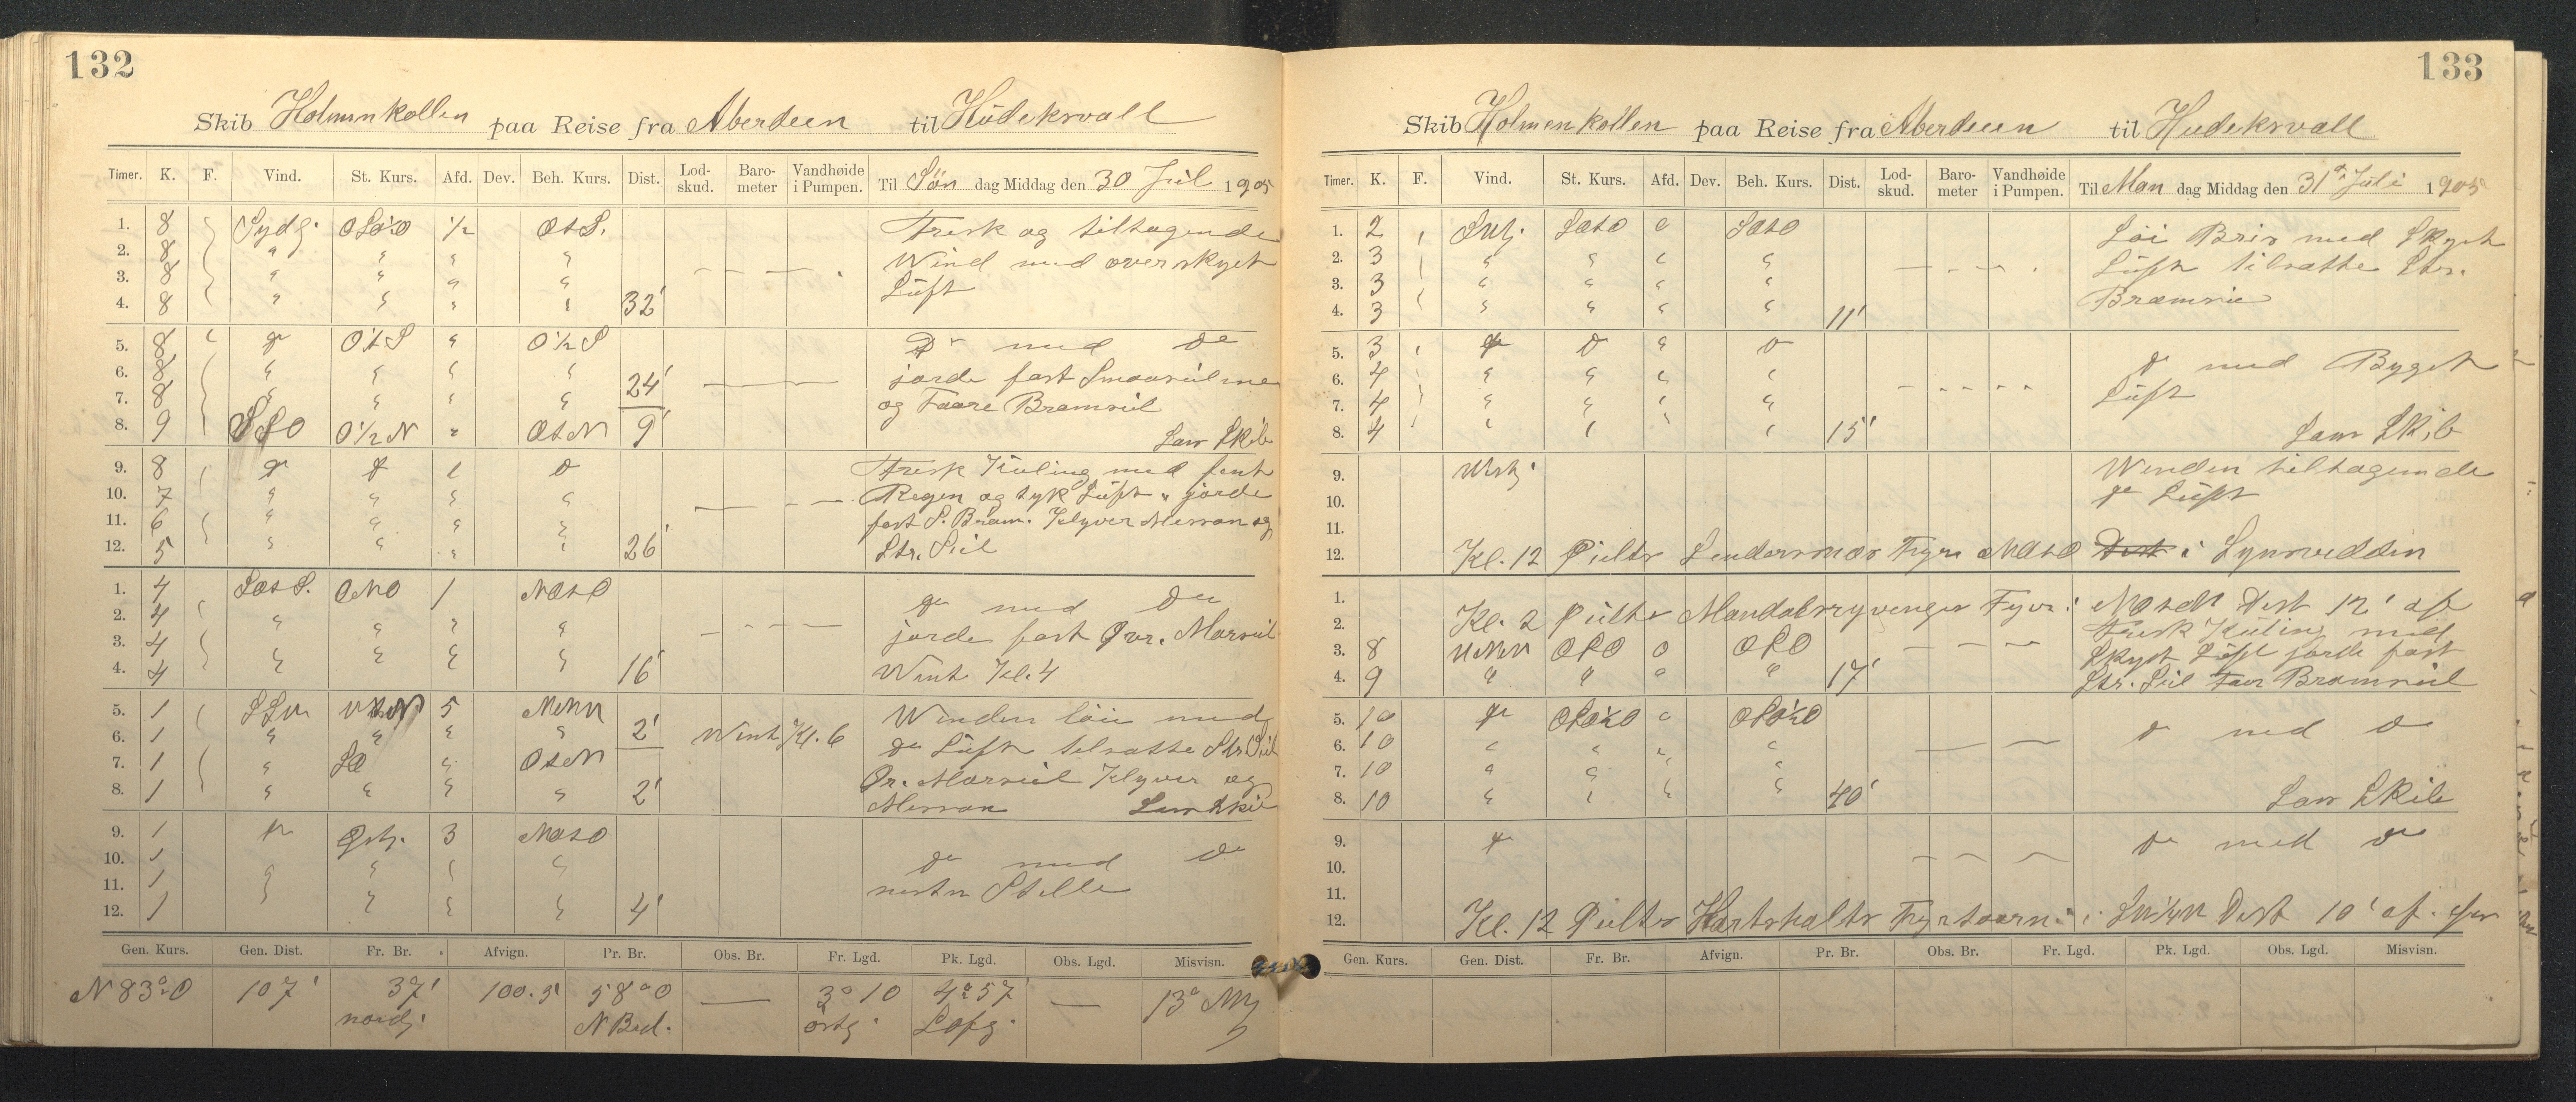 132
Skib Holmenkollen paa Reise fra Aberdeen til Hudeksvall
Timer. K. F. Vind. St. Kurs. Afd. Dev. Beh. Kurs. Dist. Lod-skud. Baro-meter Vandhøide i Pumpen. Til Søn dag Middag den 30 Jul 1905
1. 8 Sydg. OSO½O ½ OtS. Frisk og tiltagende
2. 8 " " " " Wind med overskyet
3. 8 " " " " Luft
4. 8 " " " " 32'
5. 8 do O½S " O½S Do med Do
6. 8 " " " " jorde fast Smaaseilene
7. 8 " " " " 24' og Faare Bramseil
8. 9 SSO O½N " OtN 9' Lan Skib
9. 8 do do " do Frisk Kuling med fint
10. 7 " " " " Regen og tyk Luft " jorde
11. 6 " " " " fast S. Bram. Klyver Mersan og
12. 5 " " " " 26' Str. Seil
1. 4 SOtS. ONO 1 NOtO do med Do
2. 4 " " " "
3. 4 " " " " jorde fast Øvr. Marseil
4. 4 " " " " 16' Wint Kl. 4
5. 1 SSW 5 NWNW Winden løie med
6. 1 " " " " 2' Wint Kl. 6 do Luft tilsatte Str Seil
7. 1 " SO " OtN Ør. Marseil Klyver og
8. 1 " " " " 2' Mersan Lan Skib
9. 1 do Østg. 3 NOtO do med do
10. 1 " " "
11. 1 " " " " nesten Stille
12. 1 " " " 4'
Gen. Kurs. Gen. Dist. Fr. Br. Afvign. Pr. Br. Obs. Br. Fr. Lgd. Pk. Lgd. Obs. Lgd. Misvisn.
N 83° O 107' 37' 100.5 58° 0 — 3° 10 4° 57 — 13°
nordg. N Bred. østg.
133
Skib Holmenkollen paa Reise fra Aberdeen til Hudeksvall
Timer. K. F. Vind. St. Kurs. Afd. Dev. Beh. Kurs. Dist. Lod-skud. Baro-meter Vandhøide i Pumpen. Til Man dag Middag den 31te Juli 1905
1. 2 SOtO 0 SOtO Løi Bris med Skyet
2. 3 " " " " Luft tilsatte Str.
3. 3 " " " " Bramseil
4. 3 " " " " 11'
5. 3 do do " do do med Byget
6. 4 " " " "
7. 4 " " " " Luft
8. 4 " " " " 15' Lan Skib
9. Westg. Winden tiltagende
10. do Luft
11.
12. Kl. 12 Peilte Lindersnæs Fyr NOtO i Synsvidden
1.
2. Kl. 2 Peilte Mandalsryvingen Fyr i NOtN Dist 12' af
Frisk Kuling med
3. 8 WNW OSO 0 OSO Skyet Luft jorde fast
4. 9 " " " " 17' Str. Seil Faar Bramseil
5. 10 do OSO½O 0 OSO½O
6. 10 " " " " do med do
7. 10 " " " "
8. 10 " " " " 40' Lan Skib
9. do do med do
10.
11.
12. Kl. 12 Peilte Hartshalts Fyrtaarn i Dist 10' af.
Gen. Kurs. Gen. Dist. Fr. Br. Afvign. Pr. Br. Obs. Br. Fr. Lgd. Pk. Lgd. Obs. Lgd. Misvisn.